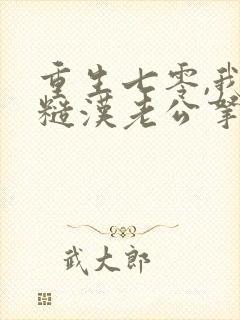 重生七零,我
糙汉老公拿
武大郎